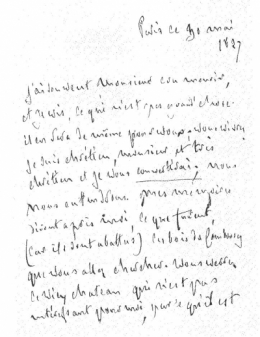 Paris ce 30 mai
1827
j'ai souvent Monsieur
et je vis, ce qui n'est pas grand chose
il en sera de même pour vous. vous
je suis chrétien, monsieur et très
chrétien et je vous convertirai, nous
nous entendrons. mes mémoires
diront après moi ce que furent,
(car ils sont abattus) ces bois de Combourg
que vous allez chercher. vous verrez
ce vieux chateau, qui n'est pas
intéressant pour moi, parce qu'il est